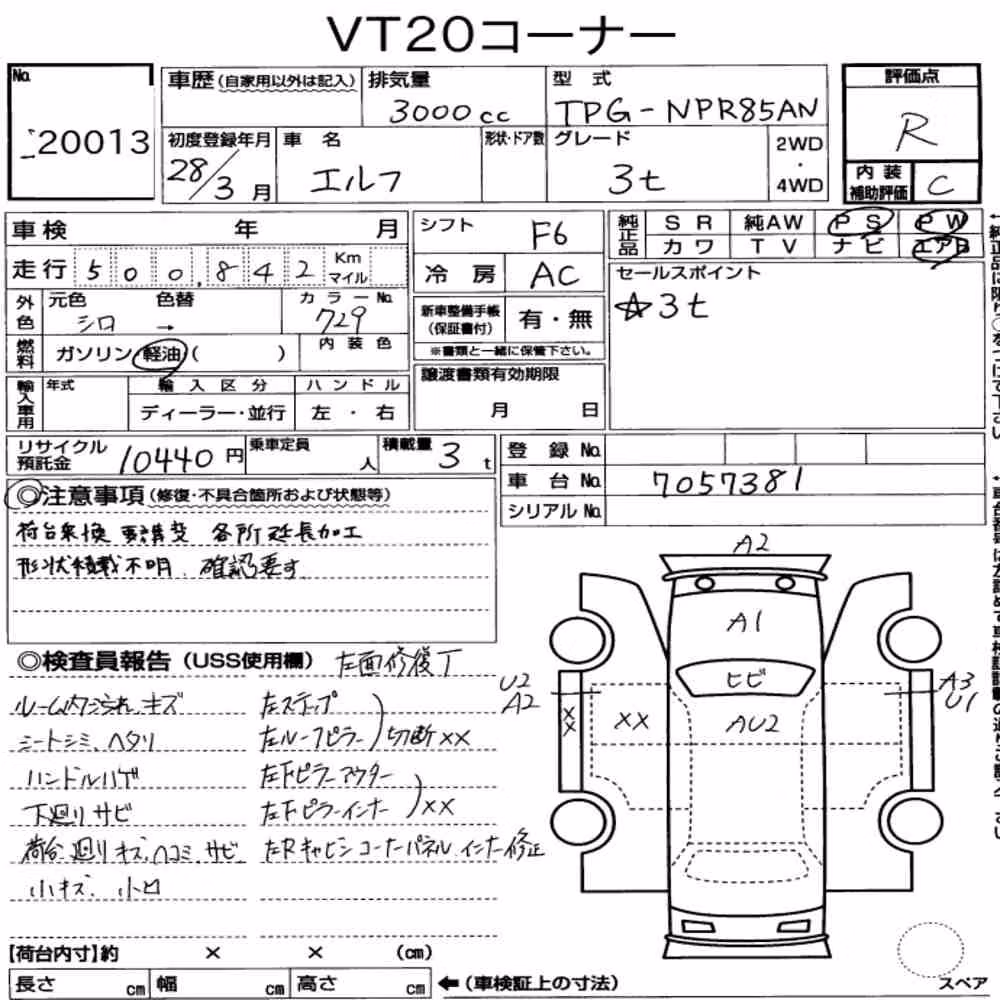 VT20コーナー
No. 20013
車歴（自家用以外は記入）
排気量 3000cc
型式 TPG-NPR85AN
評価点 R
初度登録年月 28/3月
車名 エルフ
形状・ドア数
グレード 3t
2WD・4WD
内装補助評価 C
車検 年 月
シフト F6
純正品 SR 純AW PS PW
カワ TV ナビ エアB
走行 500,842 Km マイル
冷房 AC
セールスポイント
☆3t
外色 元色 シロ 色替 → カラーNo. 729
新車整備手帳（保証書付） 有・無
※書類と一緒に保管下さい。
燃料 ガソリン・軽油（ ） 内装色
譲渡書類有効期限
月 日
輸入車用 年式 輸入区分 ハンドル
ディーラー・並行 左・右
リサイクル預託金 10440円
乗車定員 人
積載量 3t
登録No.
車台No. 7057381
シリアルNo.
◎注意事項（修復・不具合箇所および状態等）
荷台乗換 要構変 各所延長加工
形状積載不明、確認要す
◎検査員報告（USS使用欄） 左面修復丁
ルーム内汚れ、キズ
シートシミ、ヘタリ
ハンドルハゲ
下廻りサビ
荷台廻りキズ、ヘコミ、サビ
小キズ、小凹
左ステップ
左ルーフピラー 切断××
左下ピラーアウター
左下ピラーインナー ××
左Rキャビンコーナーパネル、インナー修正
A2
A1
ヒビ
U2
A2
××
××
AU2
A3
U1
【荷台内寸】約 × × （cm）
長さ cm 幅 cm 高さ cm ←（車検証上の寸法）
スペア